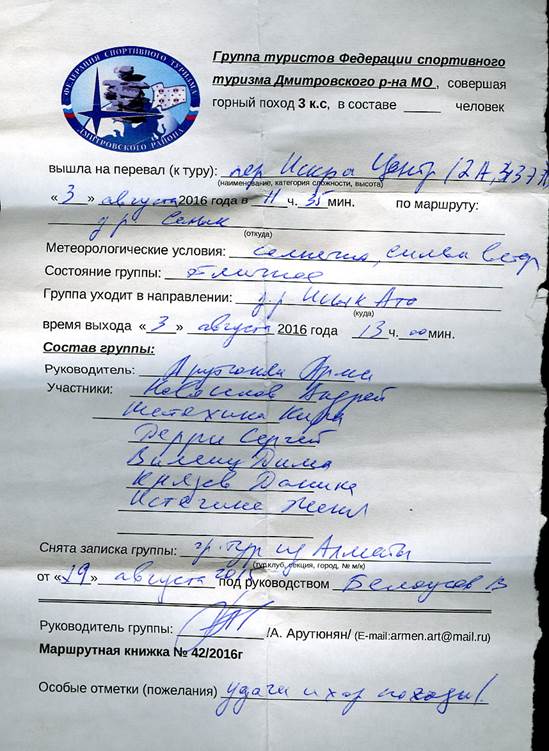 ФЕДЕРАЦИЯ СПОРТИВНОГО ТУРИЗМА
ДМИТРОВСКОГО РАЙОНА
Группа туристов Федерации спортивного
туризма Дмитровского р-на МО , совершая
горный поход 3 к.с, в составе ____ человек
вышла на перевал (к туру): пер Искра Центр (2А,
(наименование, категория сложности, высота)
« 3 » августа 2016 года в 11 ч. 35 мин. по маршруту:
(откуда)
Метеорологические условия: солнечно,
Состояние группы: отличное
Группа уходит в направлении: Иссык Ата
(куда)
время выхода « 3 » августа 2016 года 13 ч. 00 мин.
Состав группы:
Руководитель: Арутюнян
Участники: Андрей
Кира
Сергей
Дима
Князев
Снята записка группы: гр. тур из Алматы
(турклуб, секция, город, № м/к)
от « 19 » августа под руководством Белоусов В
Руководитель группы: /А. Арутюнян/ (E-mail:armen.art@mail.ru)
Маршрутная книжка № 42/2016г
Особые отметки (пожелания) удачи и хор погоды!